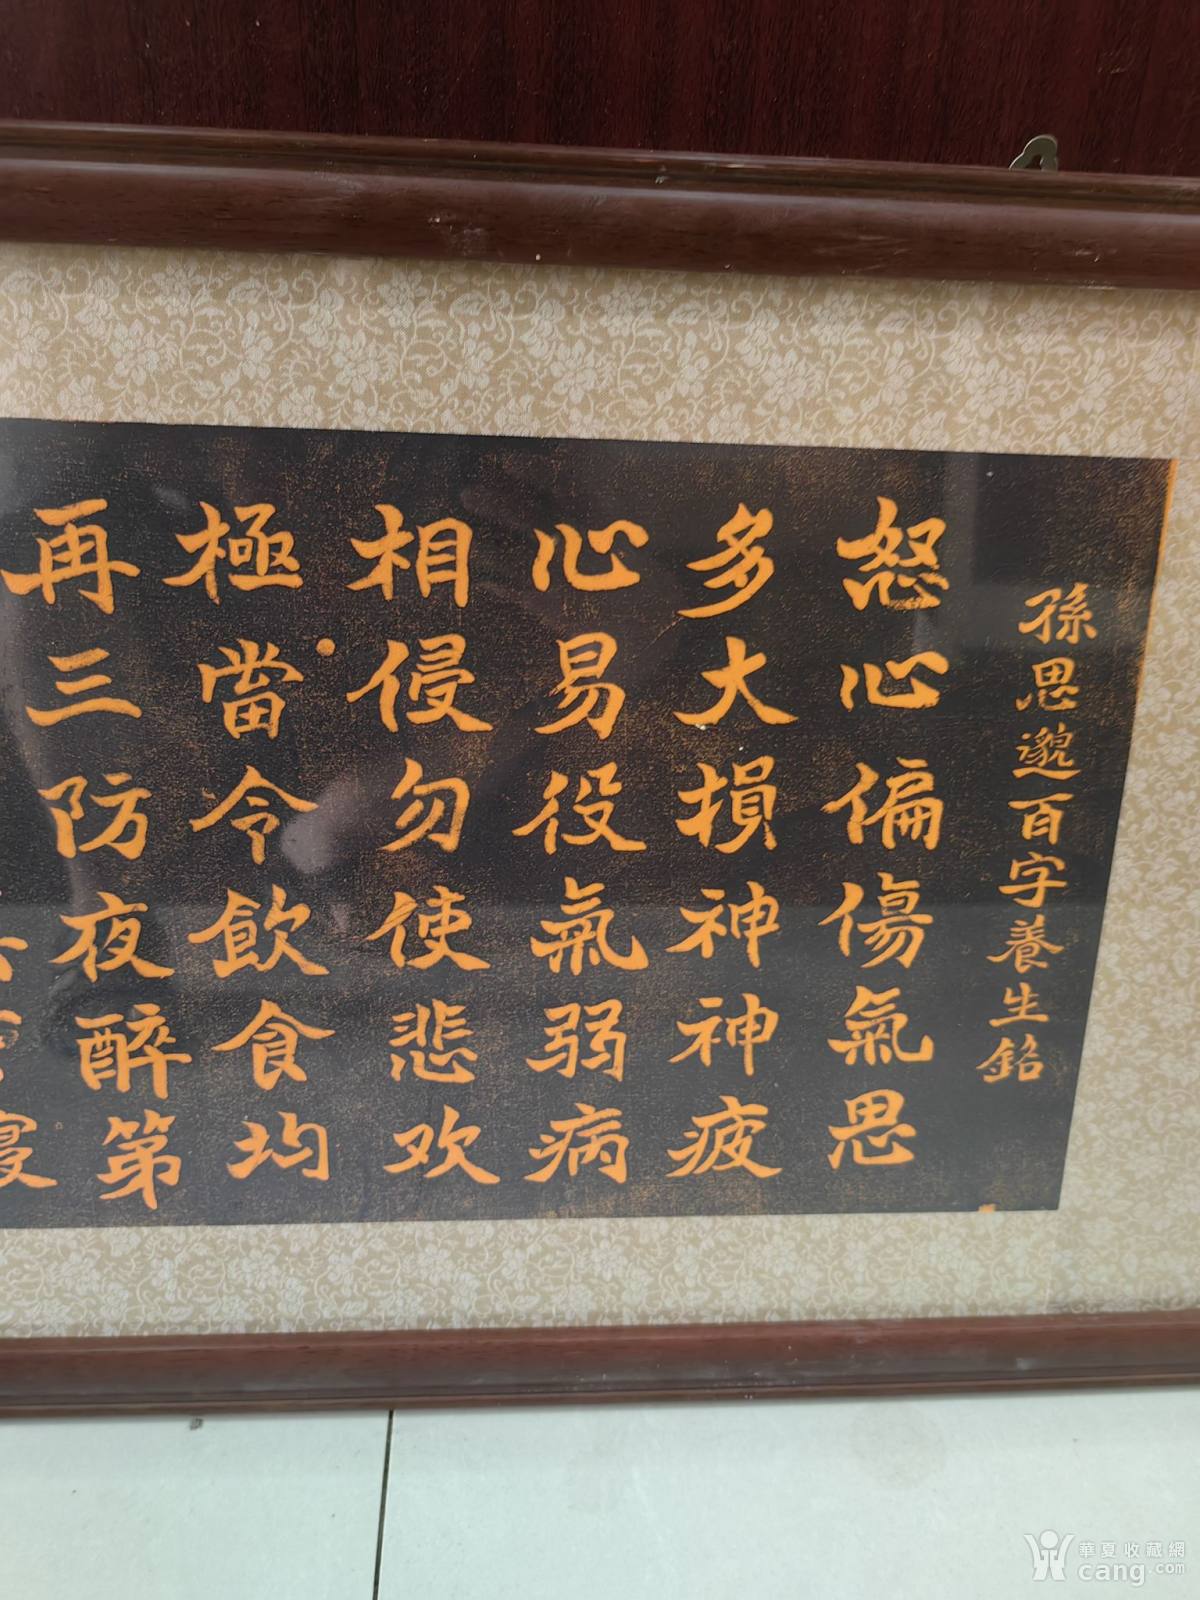 孫思邈百字養生銘
怒心偏傷氣思
多大損神神疲
心易役氣弱病
相侵勿使悲欢
極當令飲食均
再三防夜醉第
華夏收藏網
cang.com